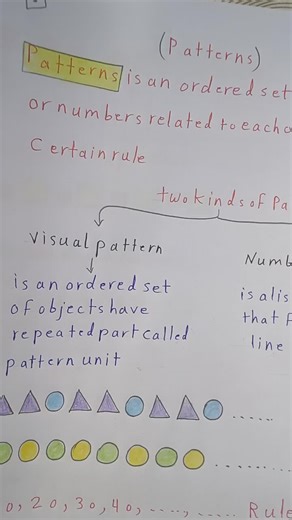 (Patterns)
Patterns is an ordered set
or numbers related to each o
Certain rule
two kinds of Pa
Visual pattern
Numb
is an ordered set
of objects have
repeated part called
pattern unit
is a lis
that f
line
0, 20, 30, 40, ...., ..... Rule